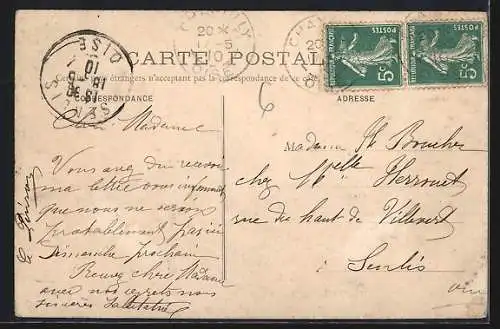 CARTE POSTALE
Certains pays étrangers n'acceptent pas la correspondance de ce côté
CORRESPONDANCE
ADRESSE
CHANTILLY
20
5
10
OISE
SENLIS
OISE
18 5
10
POSTES
5c
POSTES
5c
6
Chère Madame
Vous avez du recevoir
ma lettre vous informant
que nous ne serons
probablement pas ici
Dimanche prochain
Recevez chère Madame
avec nos regrets nos
sincères salutations
Madame St Boucher
chez Melle Herrouet
rue du haut de Villevert
à Senlis